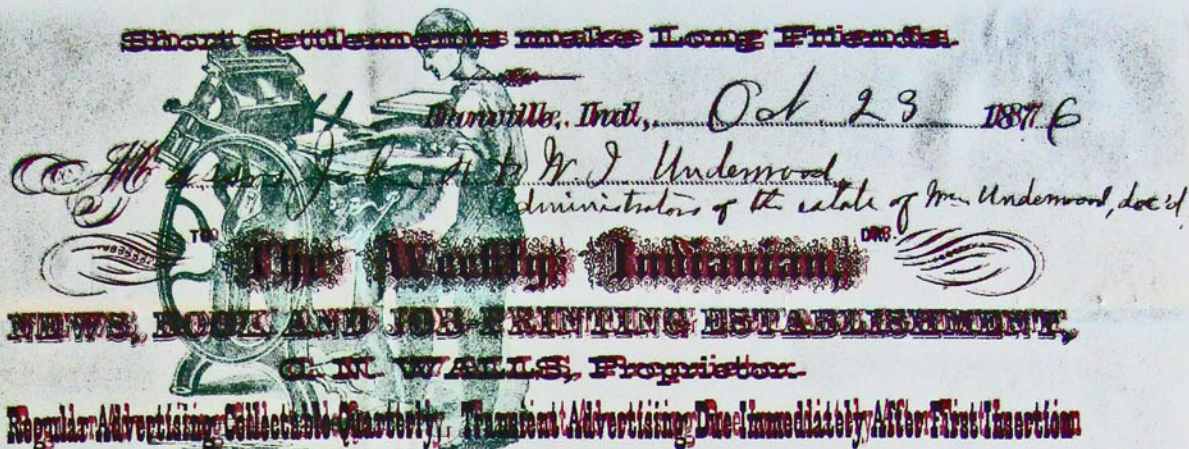 Short Settlements make Long Friends.
Danville, Ind., Oct. 23 1876
W. J. Underwood,
administrators of the estate of Wm Underwood, dec'd
TO DR.
The Weekly Indianian,
NEWS, BOOK AND JOB-PRINTING ESTABLISHMENT,
WALLS, Proprietor.
Regular Advertising Collectable Quarterly, Transient Advertising Due Immediately After First Insertion